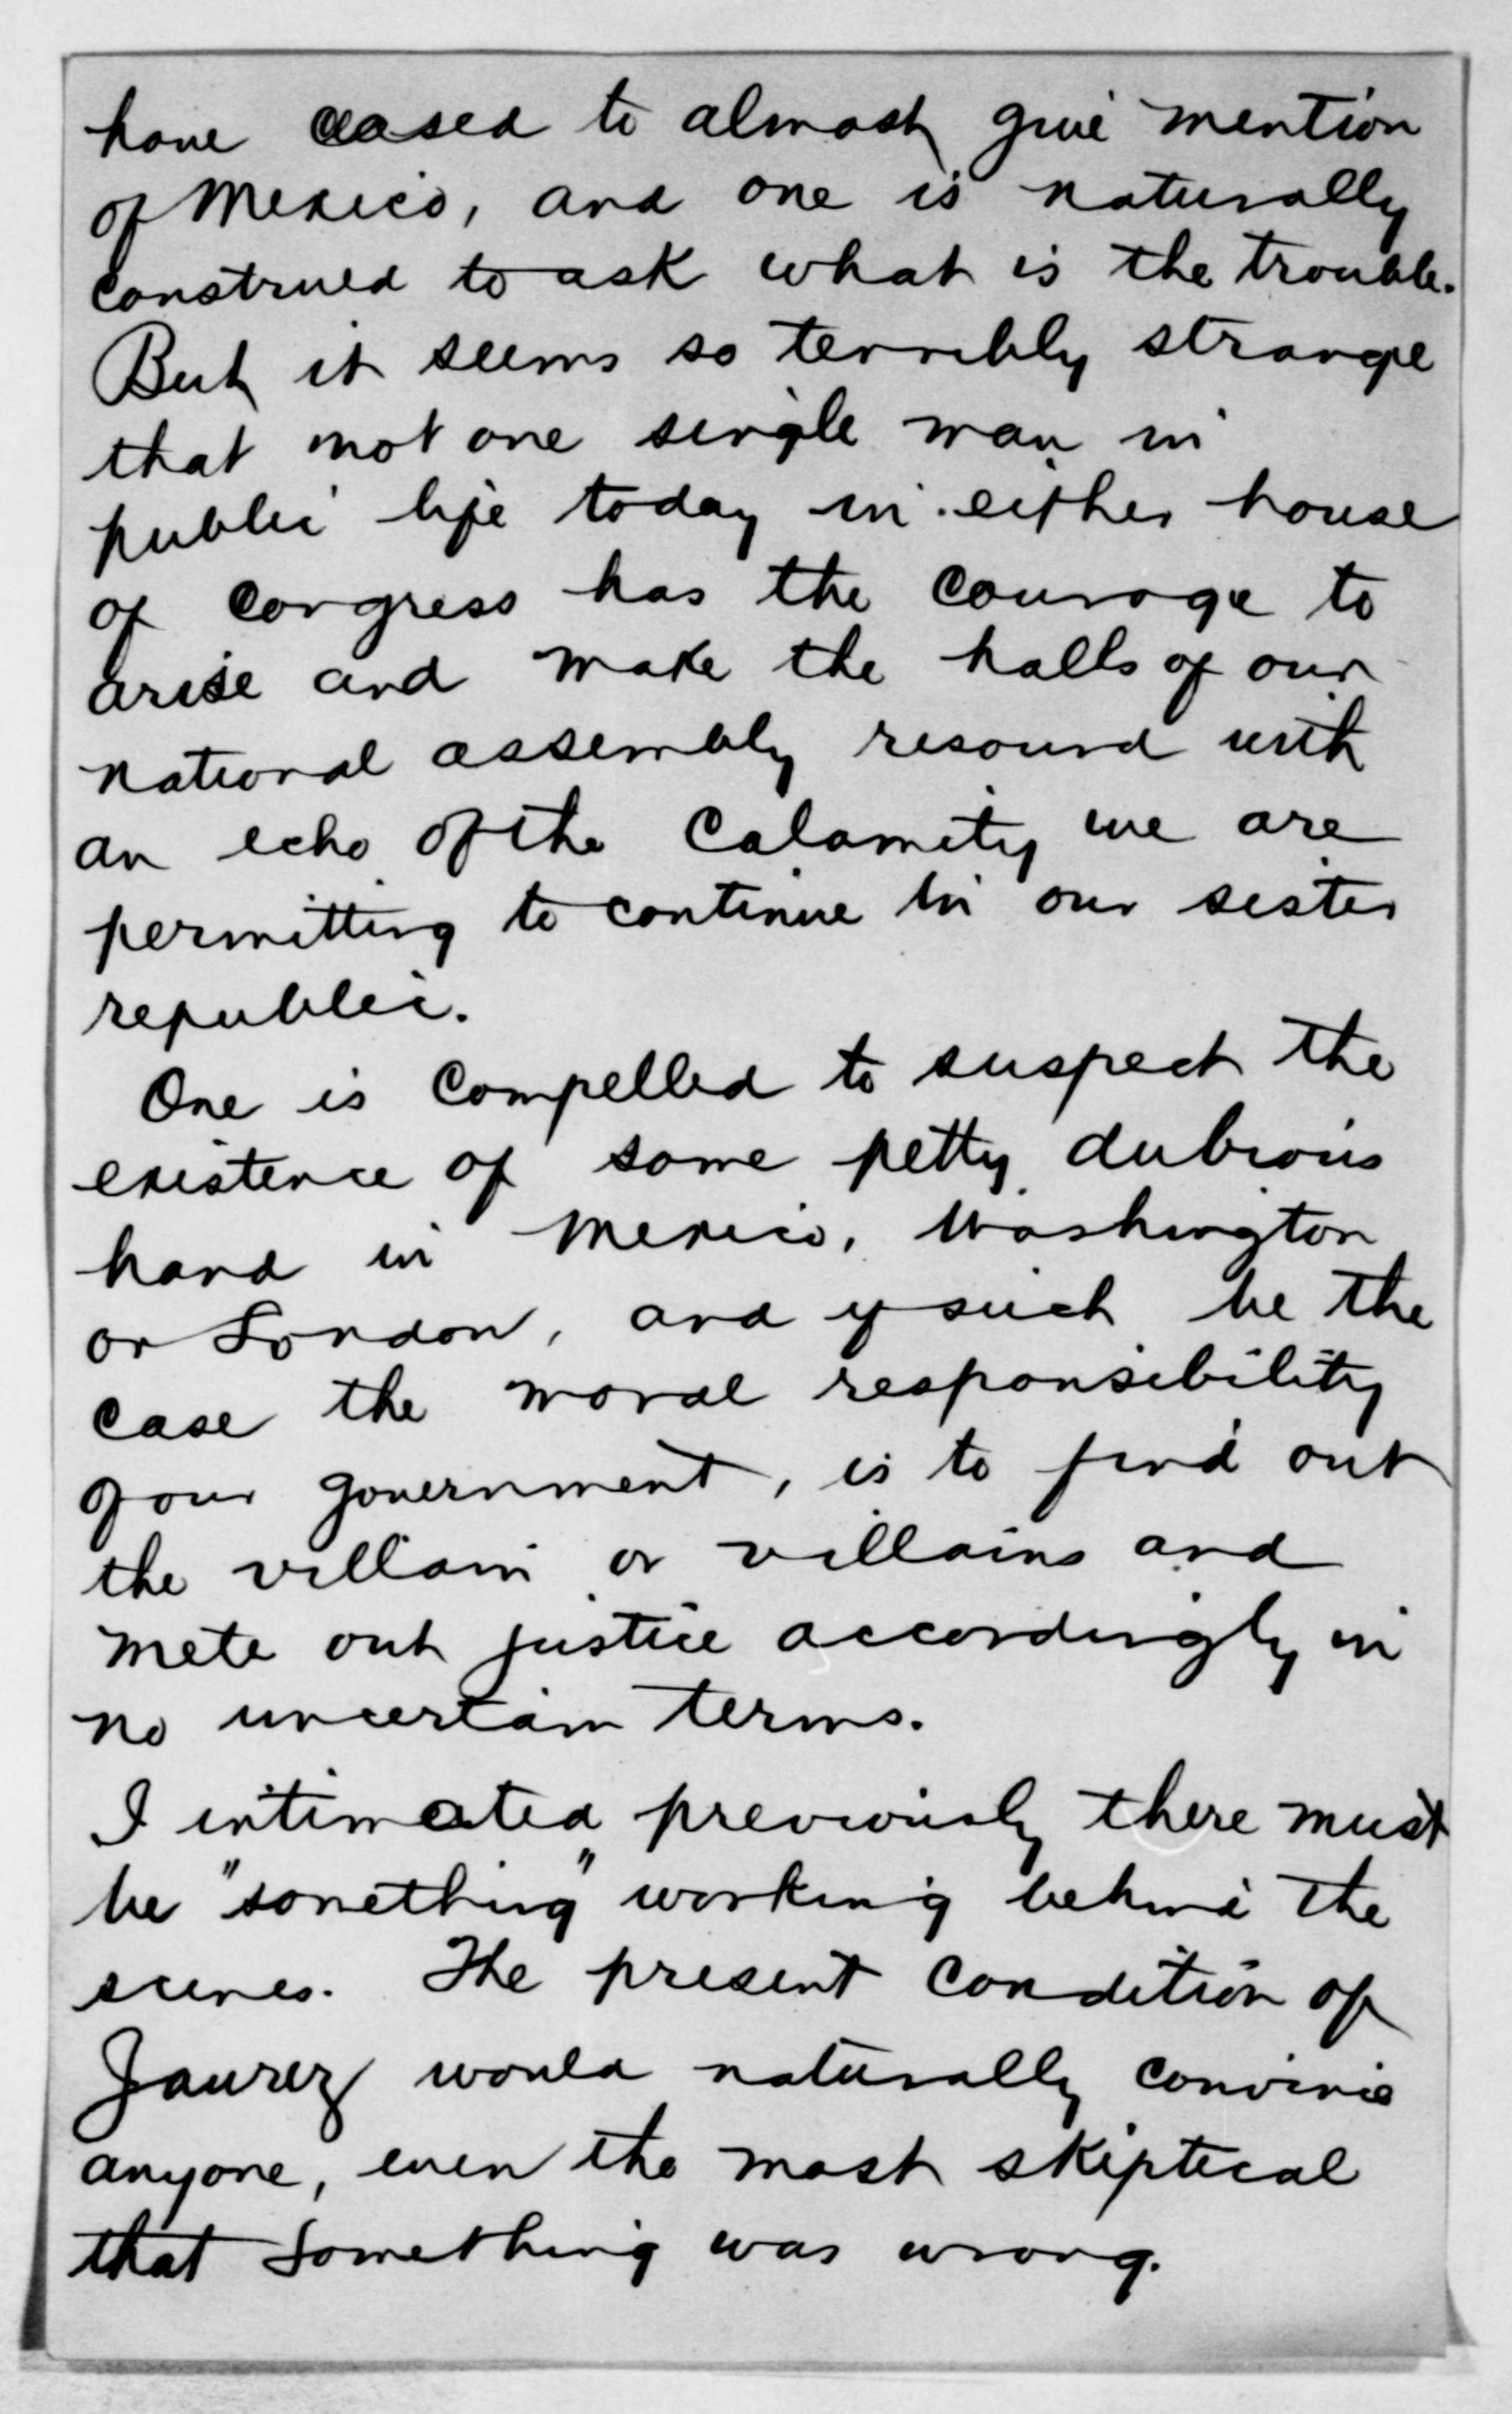 have ceased to almost give mention
of Mexico, and one is naturally
construed to ask what is the trouble.
But it seems so terribly strange
that not one single man in
public life today in either house
of Congress has the courage to
arise and make the halls of our
national assembly resound with
an echo of the calamity we are
permitting to continue in our sister
republic.
One is compelled to suspect the
existence of some petty dubious
hand in Mexico, Washington
or London, and if such be the
case the moral responsibility
of our government, is to find out
the villain or villains and
mete out justice accordingly in
no uncertain terms.
I intimated previously there must
be "something" working behind the
scenes. The present condition of
Jaurez would naturally convince
anyone, even the most skeptical
that something was wrong.